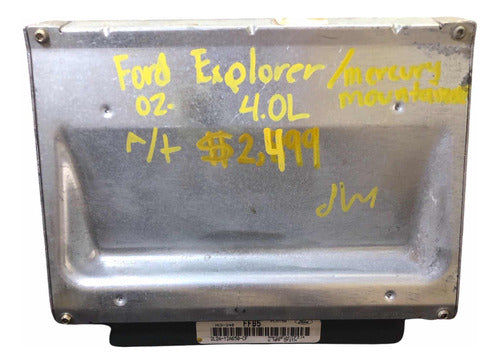 Ford Explorer /mercury
02- 4.0L mountaineer
r/t $2,499
JW
FFB5